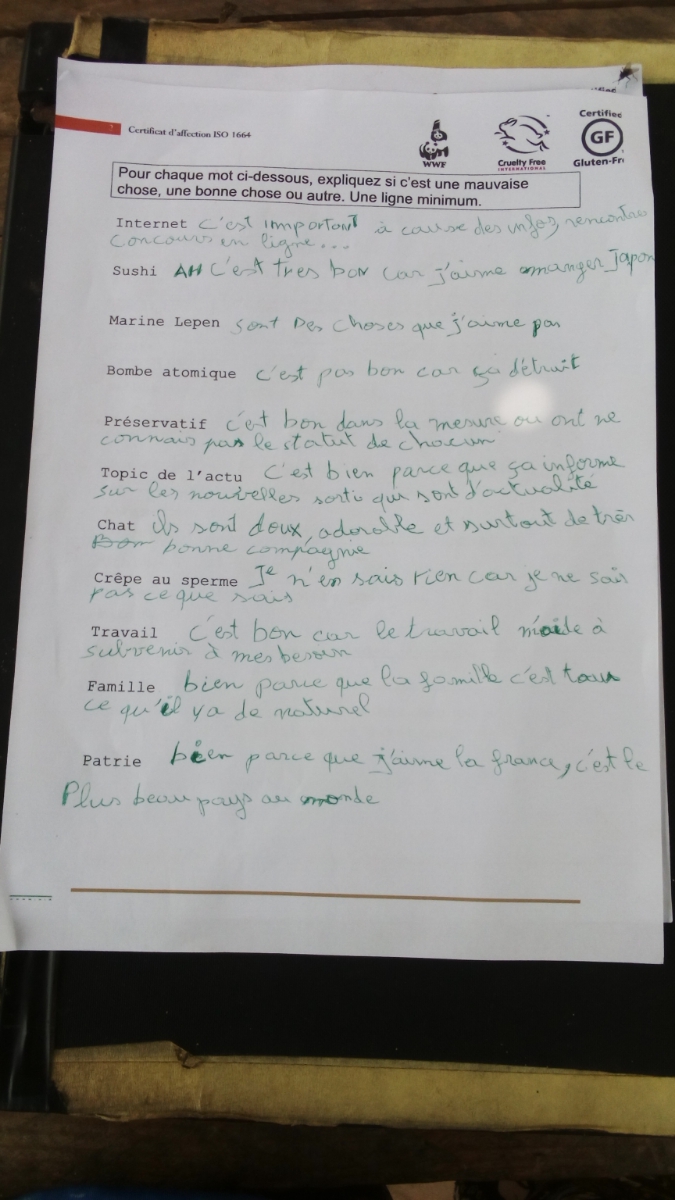 Certificat d'affection ISO 1664
WWF
Cruelty Free
INTERNATIONAL
Certified
GF
Gluten-Fr
Pour chaque mot ci-dessous, expliquez si c'est une mauvaise
chose, une bonne chose ou autre. Une ligne minimum.
Internet c'est important à cause des infos, rencontres
concours en ligne...
Sushi AH c'est tres bon car j'aime manger Japon
Marine Lepen sont Des choses que j'aime pas
Bombe atomique c'est pas bon car ça détruit
Préservatif c'est bon dans la mesure ou ont ne
connais pas le statut de chacun
Topic de l'actu C'est bien parce que ça informe
sur les nouvelles sorti qui sont d'actualité
Chat ils sont doux, adorable et surtout de très
Bon bonne compagnie
Crêpe au sperme Je n'en sais rien car je ne sais
pas ce que sais
Travail c'est bon car le travail m'aide à
subvenir à mes besoin
Famille bien parce que la famille c'est tous
ce qu'il y a de naturel
Patrie bien parce que j'aime la france, c'est le
Plus beau pays au monde